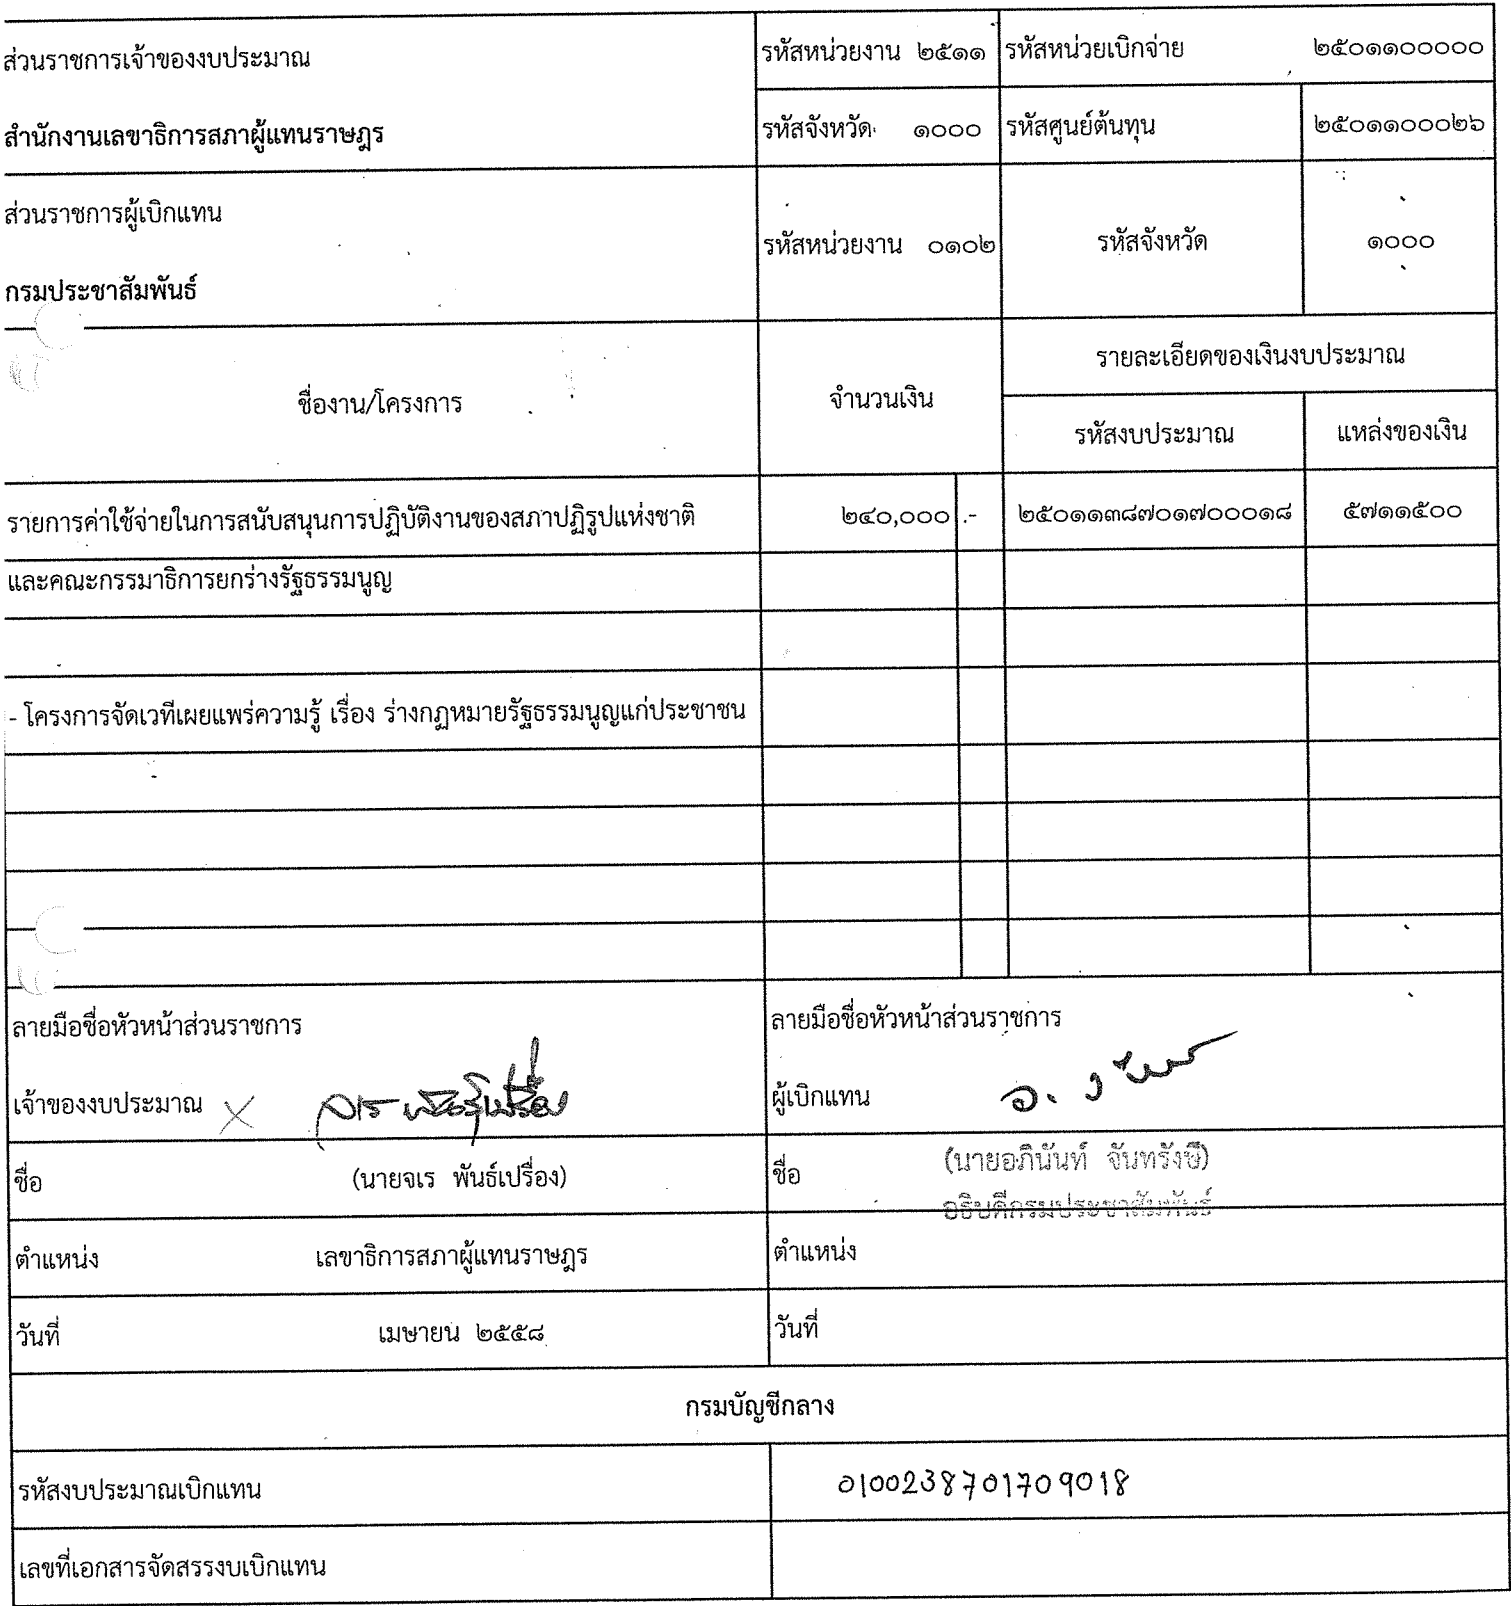 ส่วนราชการเจ้าของงบประมาณ
รหัสหน่วยงาน ๒๕๑๑
รหัสหน่วยเบิกจ่าย ๒๕๐๑๑๐๐๐๐๐
สำนักงานเลขาธิการสภาผู้แทนราษฎร
รหัสจังหวัด ๑๐๐๐
รหัสศูนย์ต้นทุน ๒๕๐๑๑๐๐๐๒๖
ส่วนราชการผู้เบิกแทน
กรมประชาสัมพันธ์
รหัสหน่วยงาน ๐๑๐๒
รหัสจังหวัด ๑๐๐๐
ชื่องาน/โครงการ
จำนวนเงิน
รายละเอียดของเงินงบประมาณ
รหัสงบประมาณ
แหล่งของเงิน
รายการค่าใช้จ่ายในการสนับสนุนการปฏิบัติงานของสภาปฏิรูปแห่งชาติ ๒๔๐,๐๐๐ .- ๒๕๐๑๑๓๘๗๐๑๗๐๐๐๑๘ ๕๗๑๑๕๐๐
และคณะกรรมาธิการยกร่างรัฐธรรมนูญ
- โครงการจัดเวทีเผยแพร่ความรู้ เรื่อง ร่างกฎหมายรัฐธรรมนูญแก่ประชาชน
ลายมือชื่อหัวหน้าส่วนราชการ
เจ้าของงบประมาณ × จเร พันธุ์เปรื่อง
ลายมือชื่อหัวหน้าส่วนราชการ
ผู้เบิกแทน
ชื่อ (นายจเร พันธ์เปรื่อง)
ชื่อ (นายอภินันท์ จันทรังษี)
อธิบดีกรมประชาสัมพันธ์
ตำแหน่ง เลขาธิการสภาผู้แทนราษฎร
ตำแหน่ง
วันที่ เมษายน ๒๕๕๘
วันที่
กรมบัญชีกลาง
รหัสงบประมาณเบิกแทน 0100238701709018
เลขที่เอกสารจัดสรรงบเบิกแทน